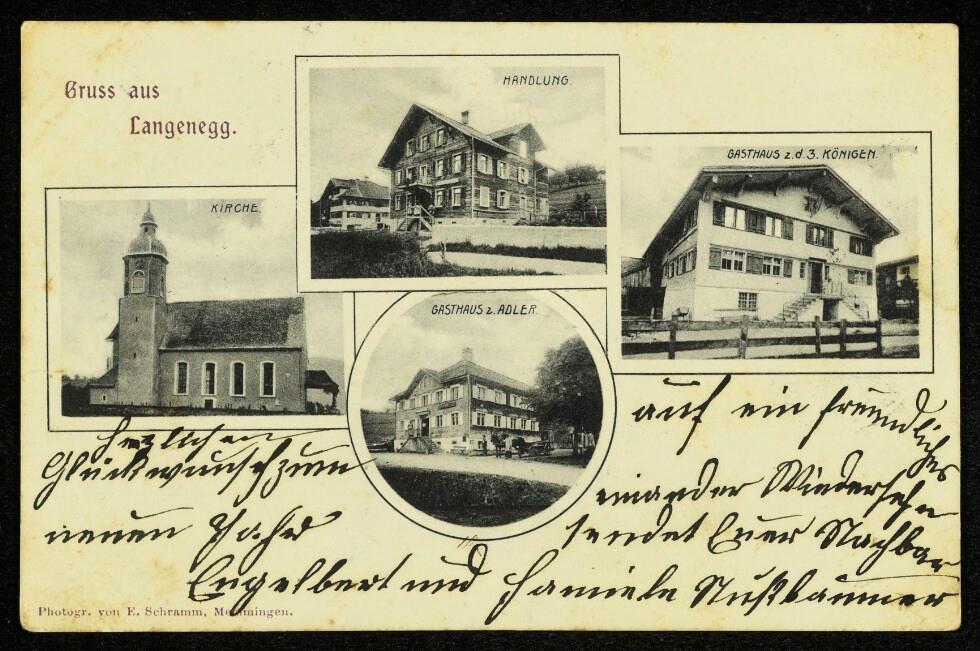 Gruss aus
Langenegg.
HANDLUNG.
GASTHAUS z. d 3. KÖNIGEN.
KIRCHE.
GASTHAUS z. ADLER.
herzlichen
Glückwunsch zum
neuen Jahr
auf ein freundliches
einander Wiedersehn
sendet Euer Nachbar
Engelbert und Nußbaumer
Photogr. von E. Schramm, Memmingen.